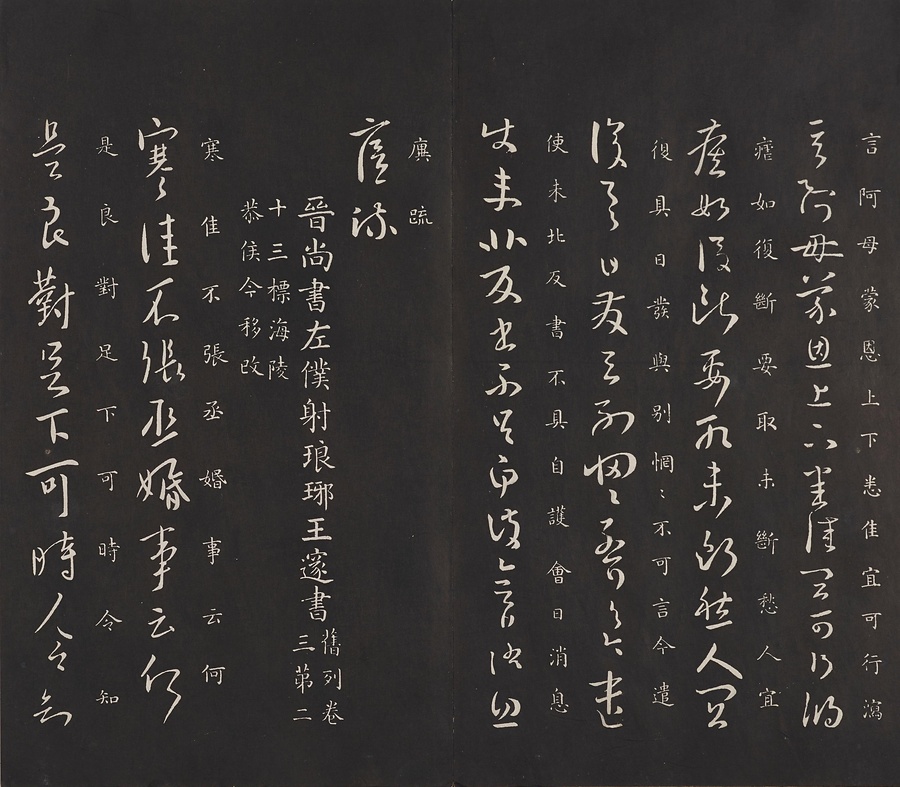 言阿母蒙恩上下悉佳宜可行瀉
言阿母蒙恩上下悉佳宜可行瀉
瘧如復斷要取未斷愁人宜
瘧如復斷要取未斷愁人宜
復具日發與別惘〻不可言今遣
復具日發與別惘〻不可言今遣
使未北反書不具自護會日消息
使未北反書不具自護會日消息
廙疏
廙疏
晉尚書左僕射琅琊王邃書
舊列卷
三第二
十三標海陵
恭侯今移改
寒佳不張丞婚事云何
寒佳不張丞婚事云何
是良對足下可時令知
是良對足下可時令知